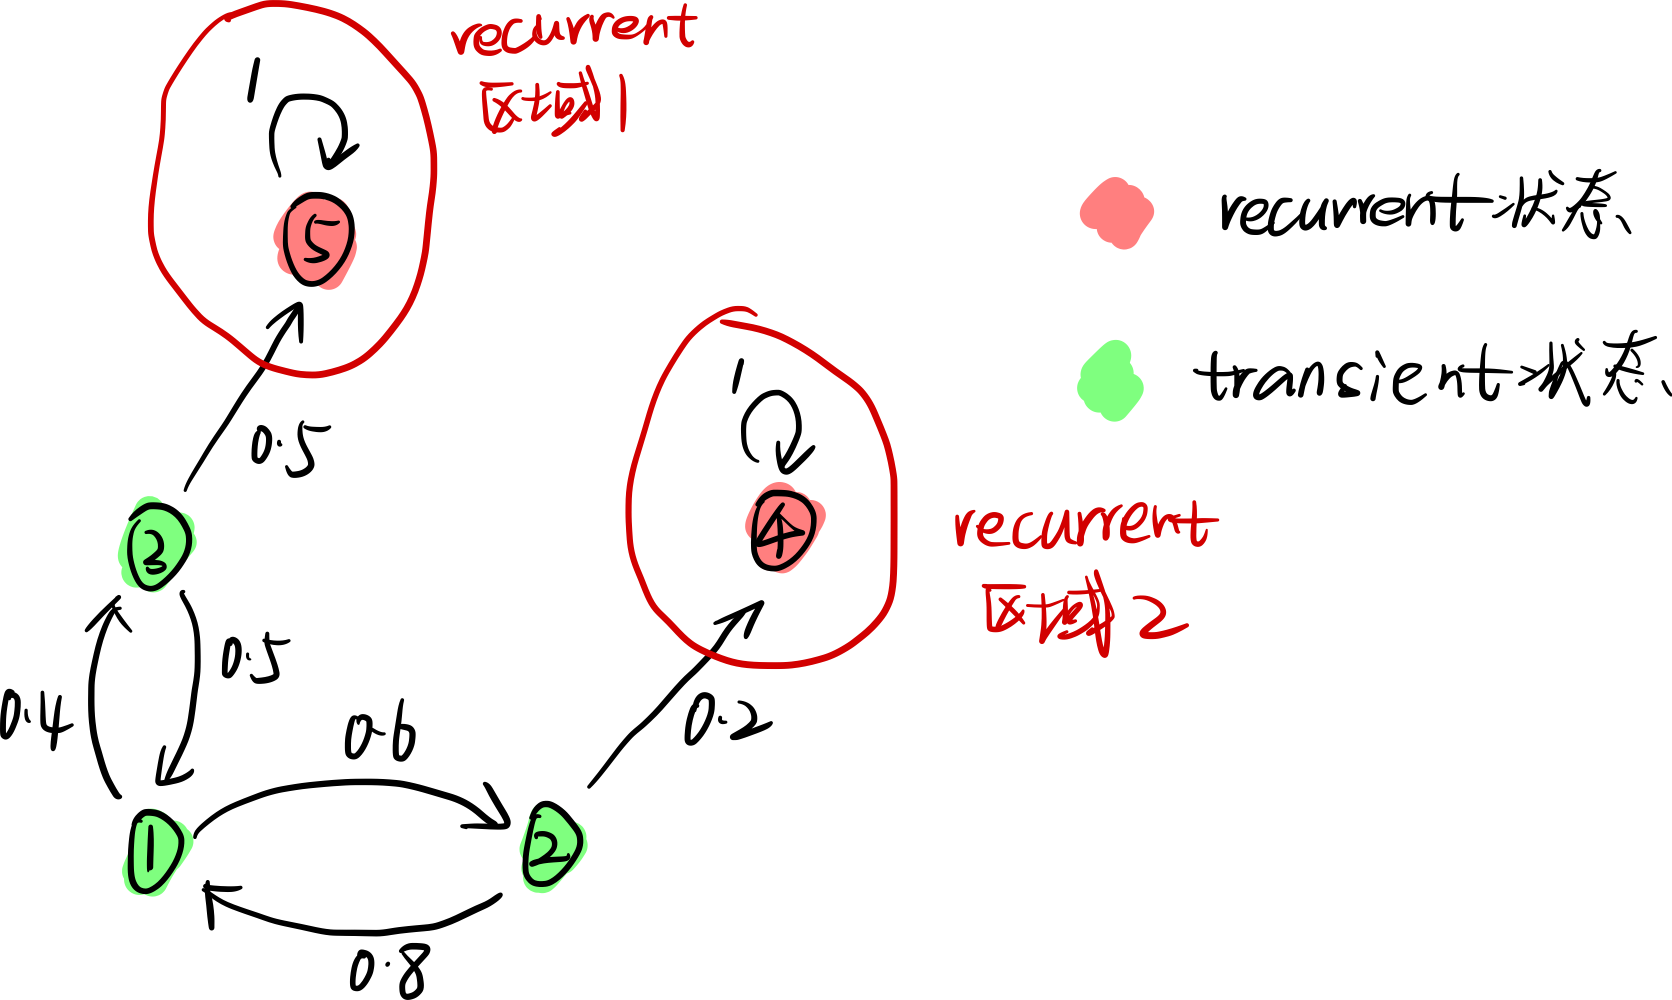 recurrent
区域1
1
5
recurrent状态
transient状态
0.5
1
4
3
recurrent
区域2
0.5
0.4
0.6
0.2
1
2
0.8